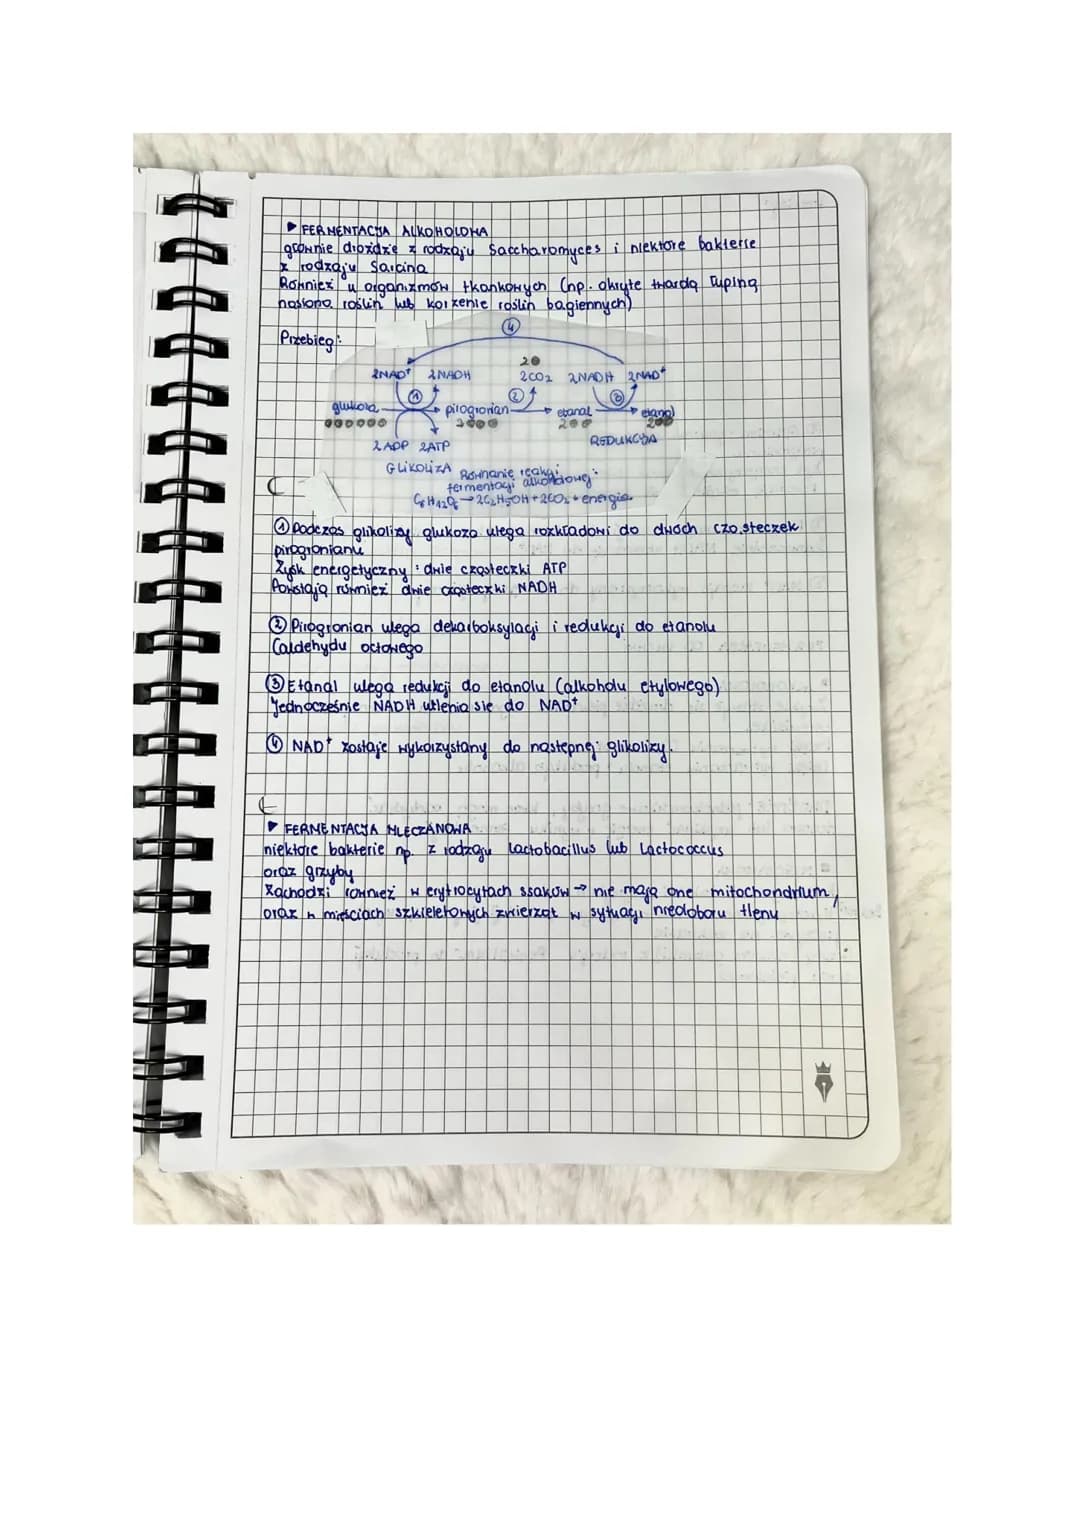 ▶ FERMENTACJA ALKOHOLOWA
głównie drożdże z rodzaju Saccharomyces i niektóre bakterie
z rodzaju Sarcina
Również u organizmów tkankowych (np. okryte twardą łupiną
nasiona roślin lub korzenie roślin bagiennych)
Przebieg:
4
2NAD⁺ 2NADH
2CO₂ 2NADH 2NAD⁺
1 2 3
glukoza pirogronian etanal etanol
2 2 2 2
2ADP 2ATP
REDUKCJA
GLIKOLIZA
Równanie reakcji
fermentacji alkoholowej:
C₆H₁₂O₆ → 2C₂H₅OH + 2CO₂ + energia
① Podczas glikolizy glukoza ulega rozkładowi do dwóch cząsteczek
pirogronianu
Zysk energetyczny: dwie cząsteczki ATP
Powstają również dwie cząsteczki NADH
② Pirogronian ulega dekarboksylacji i redukcji do etanolu
(aldehydu octowego
③ Etanal ulega redukcji do etanolu (alkoholu etylowego)
Jednocześnie NADH utlenia się do NAD⁺
④ NAD⁺ zostaje wykorzystany do następnej glikolizy.
▶ FERMENTACJA MLECZANOWA
niektóre bakterie np. z rodzaju Lactobacillus lub Lactococcus
oraz grzyby
Zachodzi również w erytrocytach ssaków → nie mają one mitochondrium,
oraz w mięściach szkieletowych zwierząt w sytuacji niedoboru tlenu